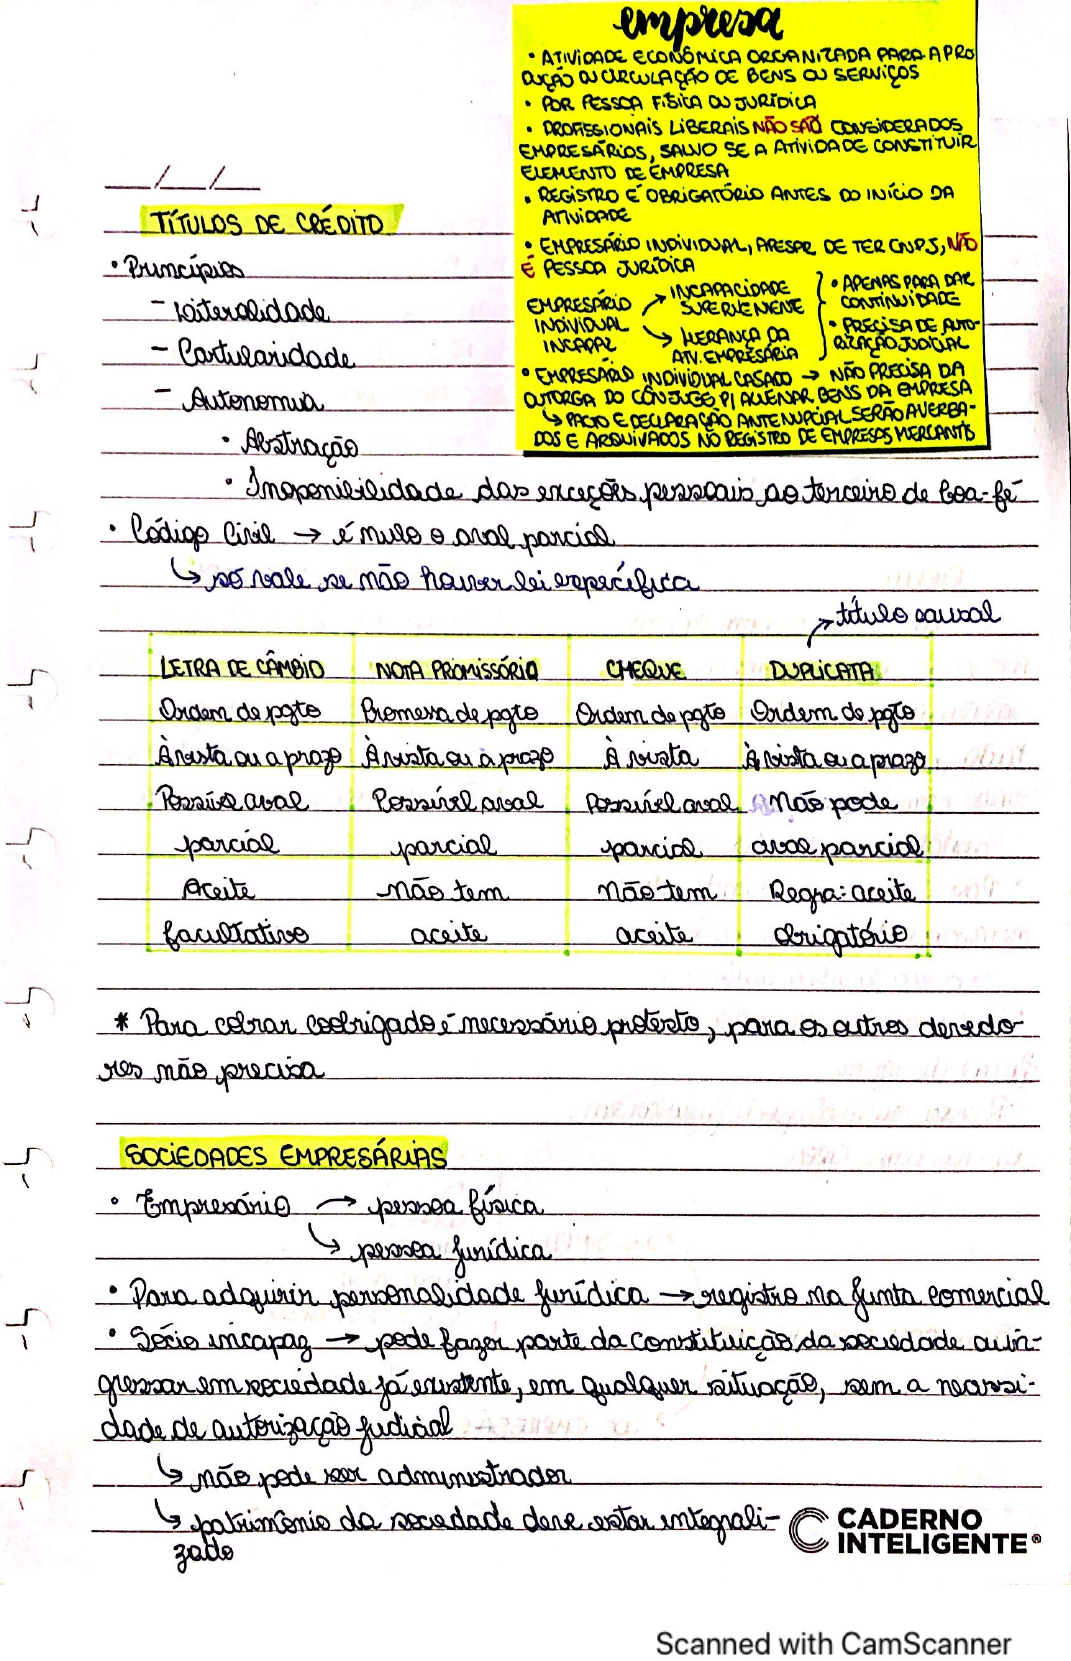 empresa
• ATIVIDADE ECONÔMICA ORGANIZADA PARA A PRO
DUÇÃO OU CIRCULAÇÃO DE BENS OU SERVIÇOS
• POR PESSOA FÍSICA OU JURÍDICA
• PROFISSIONAIS LIBERAIS NÃO SÃO CONSIDERADOS
EMPRESÁRIOS, SALVO SE A ATIVIDADE CONSTITUIR
ELEMENTO DE EMPRESA
• REGISTRO É OBRIGATÓRIO ANTES DO INÍCIO DA
ATIVIDADE
• EMPRESÁRIO INDIVIDUAL, APESAR DE TER CNPJ, NÃO
É PESSOA JURÍDICA
EMPRESÁRIO INDIVIDUAL INCAPAZ
→ INCAPACIDADE
SUPERVENIENTE
→ HERANÇA DA
ATV. EMPRESÁRIA
• APENAS PARA DAR
CONTINUIDADE
• PRECISA DE AUTO-
RIZAÇÃO JUDICIAL
• EMPRESÁRIO INDIVIDUAL CASADO → NÃO PRECISA DA
OUTORGA DO CÔNJUGE P/ ALIENAR BENS DA EMPRESA
↳ PACTO E DECLARAÇÃO ANTENUPCIAL SERÃO AVERBA-
DOS E ARQUIVADOS NO REGISTRO DE EMPRESAS MERCANTIS
__/__/__
TÍTULOS DE CRÉDITO
• Princípios
- Literalidade
- Cartularidade
- Autonomia
• Abstração
• Inoponibilidade das exceções pessoais ao terceiro de boa-fé
• Código Civil → é nulo o aval parcial
↳ só vale se não houver lei específica
título causal
LETRA DE CÂMBIO NOTA PROMISSÓRIA CHEQUE DUPLICATA
Ordem de pgto Promessa de pgto Ordem de pgto Ordem de pgto
À vista ou a prazo À vista ou à prazo À vista À vista ou a prazo
Possível aval Possível aval Possível aval Não pode
parcial parcial parcial aval parcial
Aceite Não tem Não tem Regra: aceite
facultativo aceite aceite obrigatório
* Para cobrar coobrigado é necessário protesto, para os outros devedo-
res não precisa
SOCIEDADES EMPRESÁRIAS
• Empresário → pessoa física
↳ pessoa jurídica
• Para adquirir personalidade jurídica → registro na junta comercial
• Sócio incapaz → pode fazer parte da constituição da sociedade ou in-
gressar em sociedade já existente, em qualquer situação, sem a necessi-
dade de autorização judicial
↳ não pode ser administrador
↳ patrimônio da sociedade deve estar integrali-
zado
CADERNO
INTELIGENTE®
Scanned with CamScanner